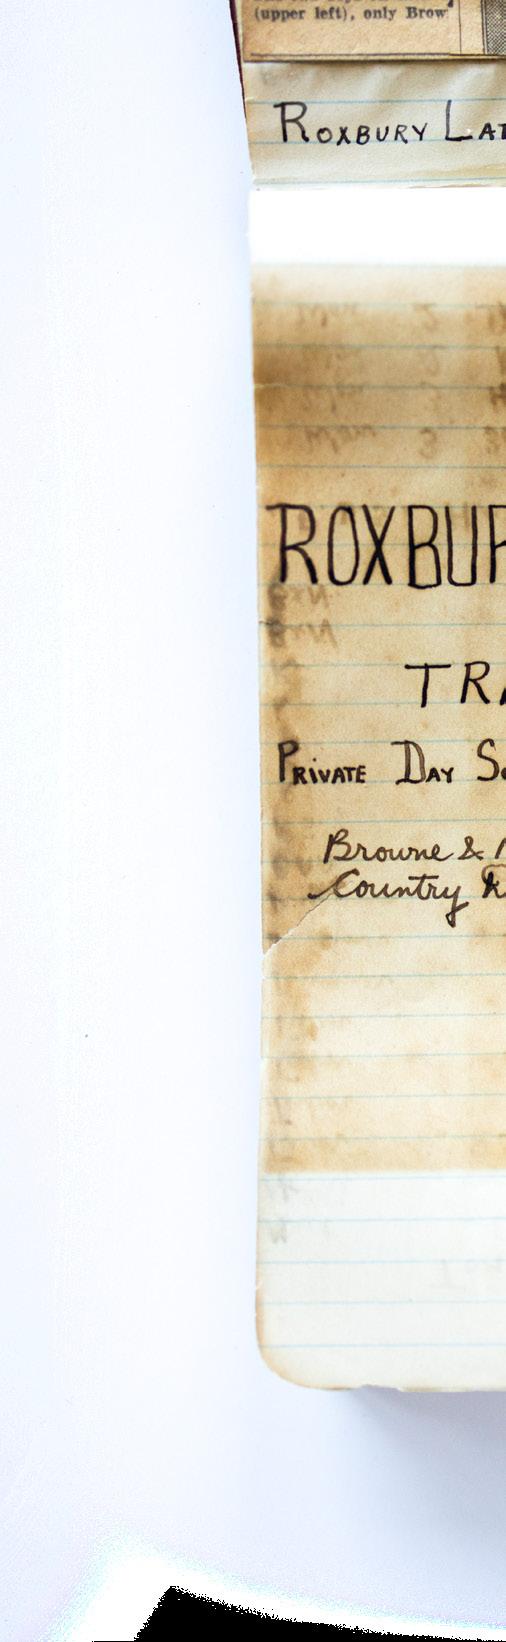 (upper left), only Brow
ROXBURY LAT
ROXBUR
TRA
PRIVATE DAY Sc
Browne & N
Country